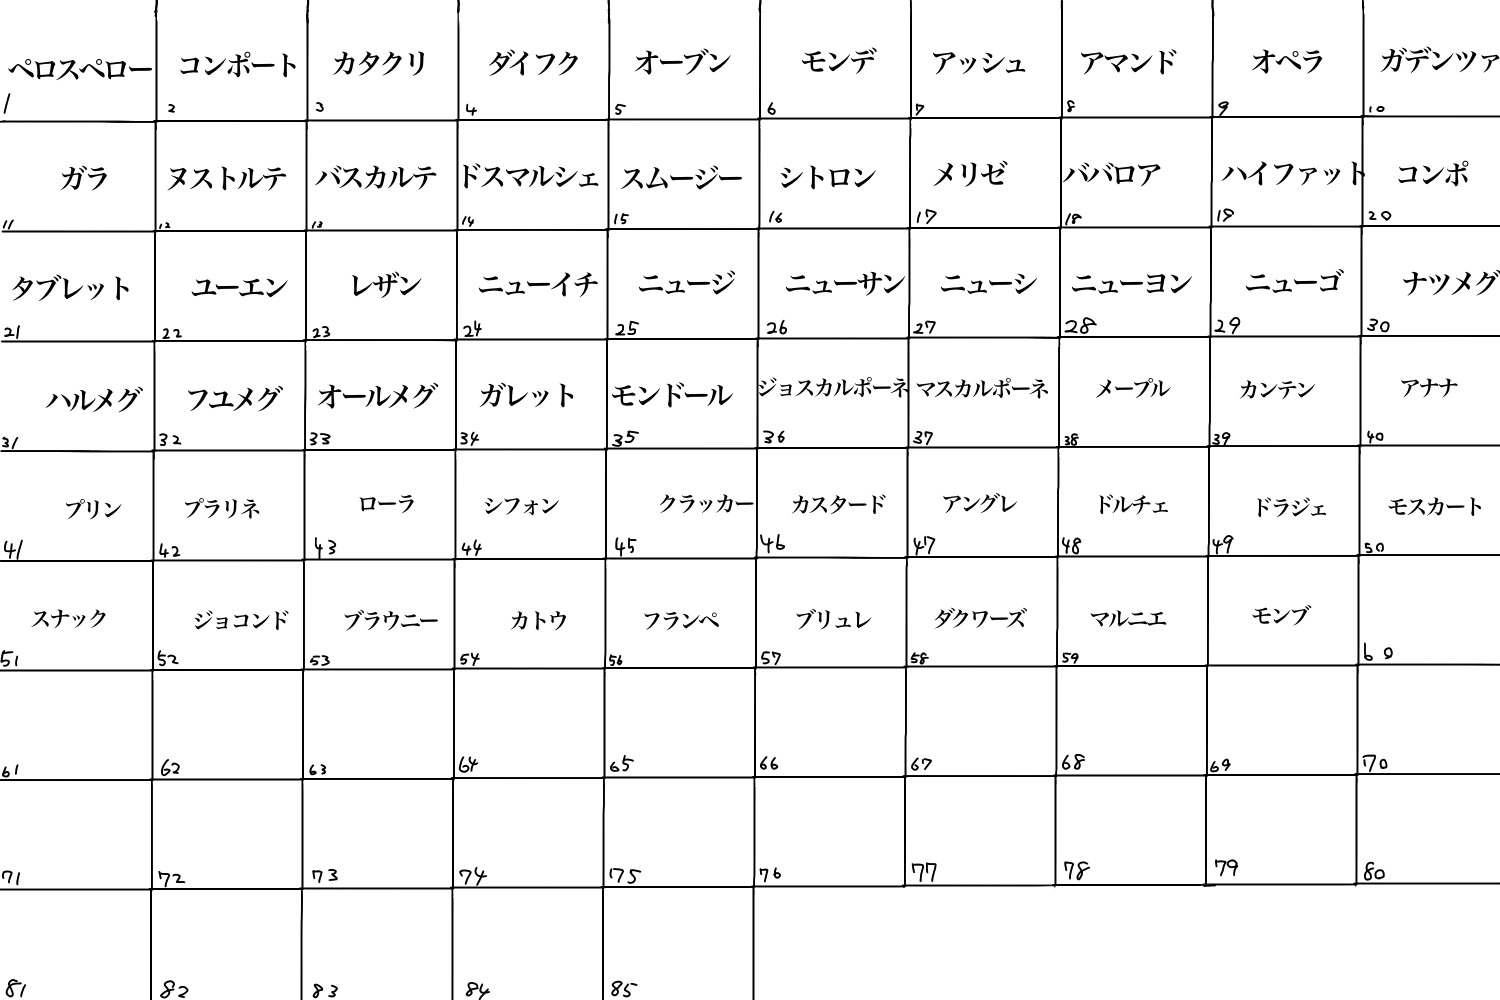 ペロスペロー コンポート カタクリ ダイフク オーブン モンデ アッシュ アマンド オペラ ガデンツァ
1 2 3 4 5 6 7 8 9 10
ガラ ヌストルテ バスカルテ ドスマルシェ スムージー シトロン メリゼ ババロア ハイファット コンポ
11 12 13 14 15 16 17 18 19 20
タブレット ユーエン レザン ニューイチ ニュージ ニューサン ニューシ ニューヨン ニューゴ ナツメグ
21 22 23 24 25 26 27 28 29 30
ハルメグ フユメグ オールメグ ガレット モンドール ジョスカルポーネ マスカルポーネ メープル カンテン アナナ
31 32 33 34 35 36 37 38 39 40
プリン プラリネ ローラ シフォン クラッカー カスタード アングレ ドルチェ ドラジェ モスカート
41 42 43 44 45 46 47 48 49 50
スナック ジョコンド ブラウニー カトウ フランペ ブリュレ ダクワーズ マルニエ モンブ
51 52 53 54 56 57 58 59 60
61 62 63 64 65 66 67 68 69 70
71 72 73 74 75 76 77 78 79 80
81 82 83 84 85